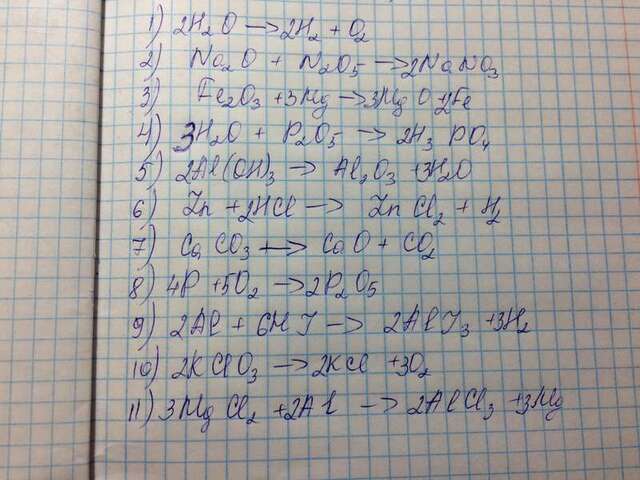 1) 2H₂O → 2H₂ + O₂
2) Na₂O + N₂O₅ → 2NaNO₃
3) Fe₂O₃ + 3Mg → 3MgO + 2Fe
4) 3H₂O + P₂O₅ → 2H₃PO₄
5) 2Al(OH)₃ → Al₂O₃ + 3H₂O
6) Zn + 2HCl → ZnCl₂ + H₂
7) CaCO₃ → CaO + CO₂
8) 4P + 5O₂ → 2P₂O₅
9) 2Al + 6HJ → 2AlJ₃ + 3H₂
10) 2KClO₃ → 2KCl + 3O₂
11) 3HgCl₂ + 2Al → 2AlCl₃ + 3Hg